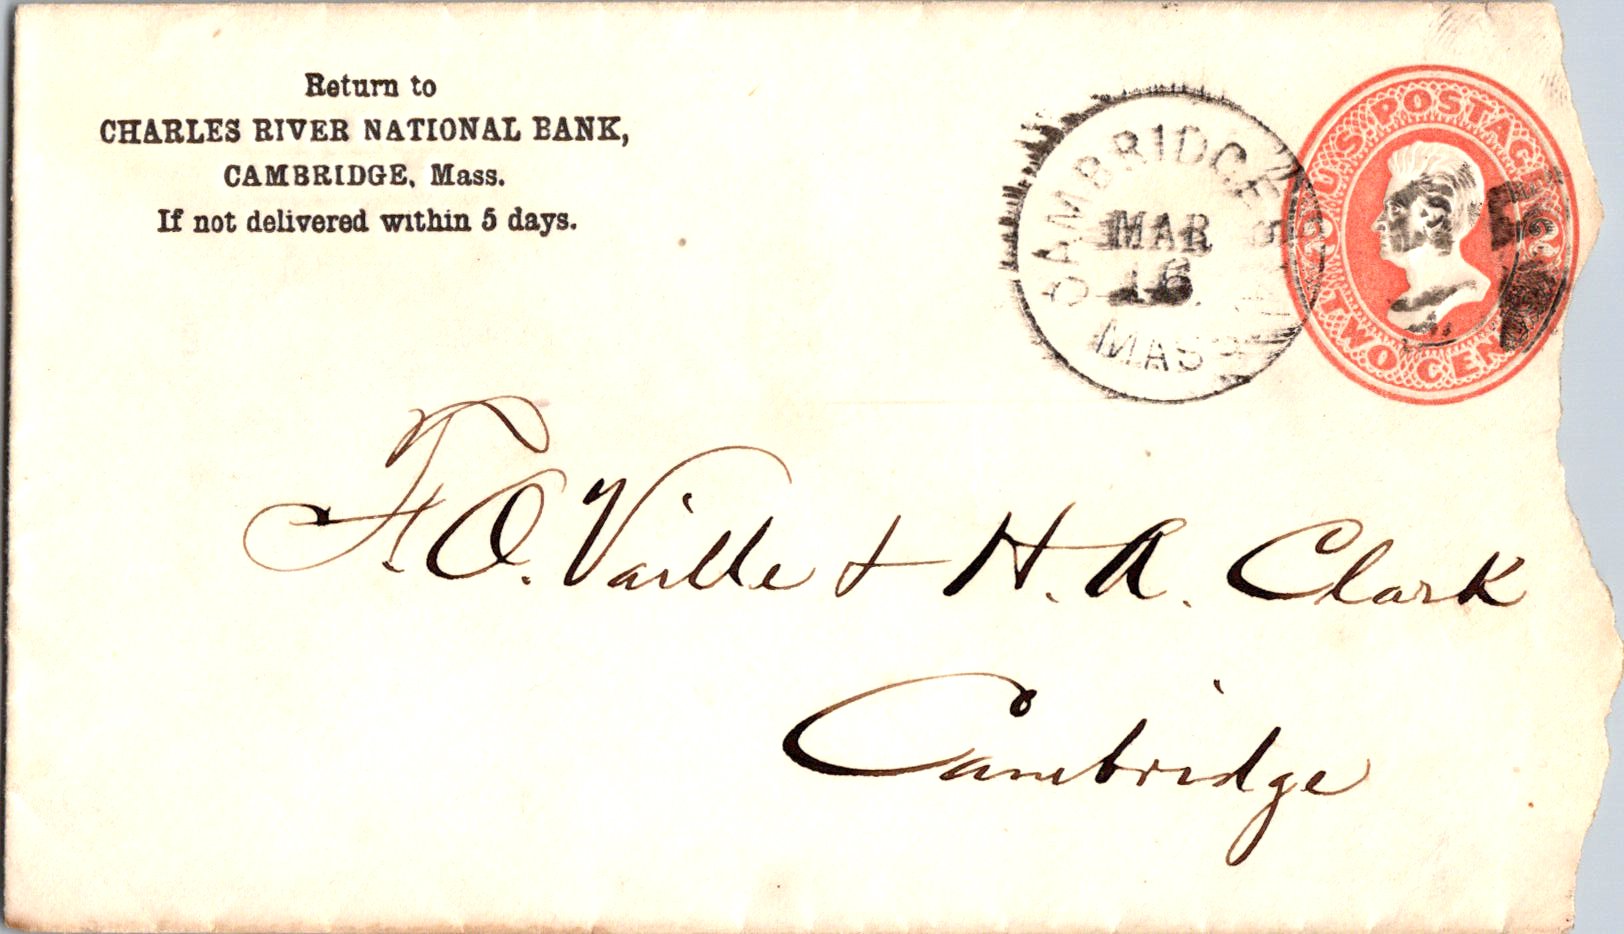 Return to
CHARLES RIVER NATIONAL BANK,
CAMBRIDGE, Mass.
If not delivered within 5 days.
CAMBRIDGE
MAR
16
MASS
U.S. POSTAGE
TWO CENTS
F. O. Vaille & H. A. Clark
Cambridge